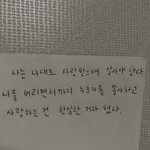 나는 나대로 사랑받으며 살아야 한다
나를 버리면서까지 누군가를 좋아하고
사랑하는 건 한심한 거라 했다.